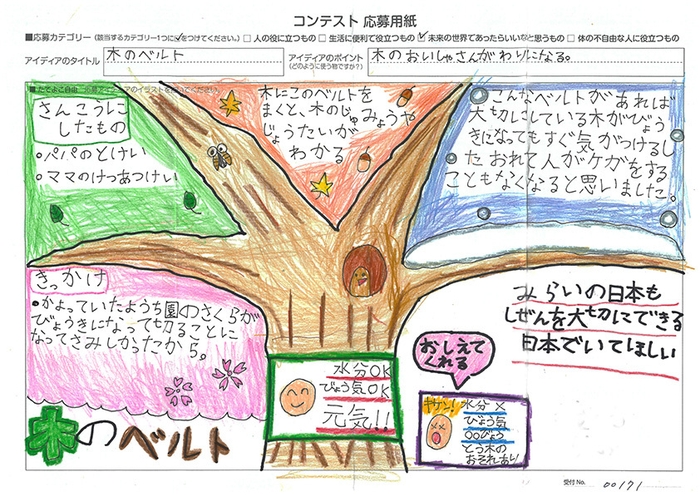 コンテスト 応募用紙
■応募カテゴリー(該当するカテゴリー1つに✓をつけてください。) □ 人の役に立つもの □ 生活に便利で役立つもの ☑ 未来の世界であったらいいなと思うもの □ 体の不自由な人に役立つもの
アイディアのタイトル
木のベルト
アイディアのポイント
(どのように使う物ですか?)
木のおいしゃさんがわりになる。
さんこうに
したもの
○パパのとけい
○ママのけつあつけい
木にこのベルトを
まくと、木のじゅみょうや
じょうたいが
わかる
こんなベルトがあれば
大切にしている木がびょう
きになってもすぐ気がつけるし
たおれて人がケガをする
こともなくなると思いました。
きっかけ
・かよっていたようち園のさくらが
びょうきになって切ることに
なってさみしかったから。
みらいの日本も
しぜんを大切にできる
日本でいてほしい
おしえて
くれる
水分OK
びょう気OK
元気!!
キケン!
水分×
びょう気
○○びょう
とう木の
おそれあり!
木のベルト
受付No.
00171